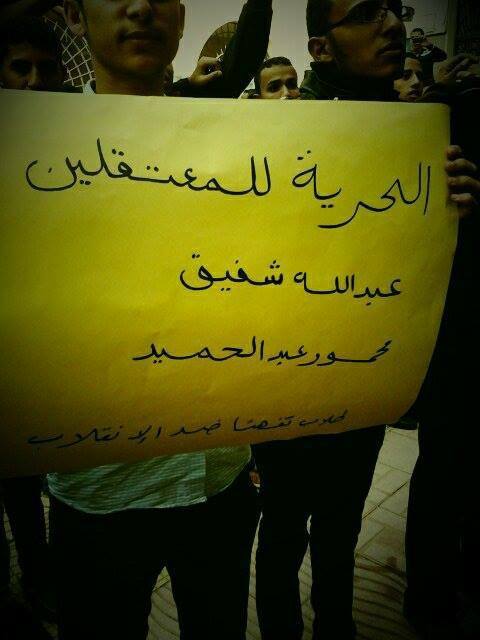 الحرية للمعتقلين
عبدالله شفيق
محمود عبد الحميد
طلاب تفهنا ضد الإنقلاب